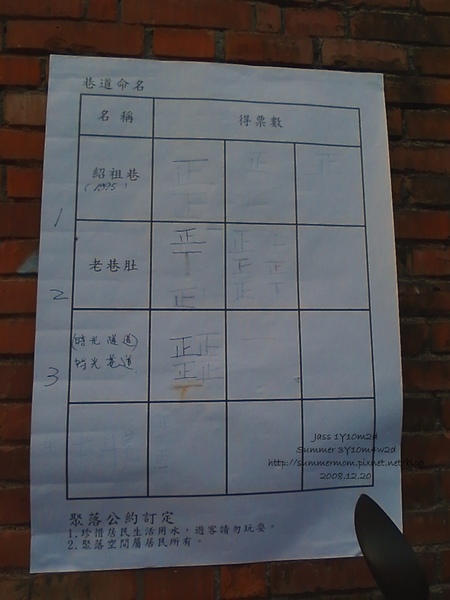 巷道命名
名稱 得票數
紹祖巷 正 正 正
(1995)
正
1
正 正
老巷肚 丅 正 正
2 正 正 丅
(時光隧道) 正正
時光巷道 正正
3 丅
Jass 1Y10m2d
Summer 3Y10m4w2d
http://summermom.pixnet.net/blog
2008.12.20
聚落公約訂定
1.珍惜居民生活用水，遊客請勿玩耍。
2.聚落空間屬居民所有。